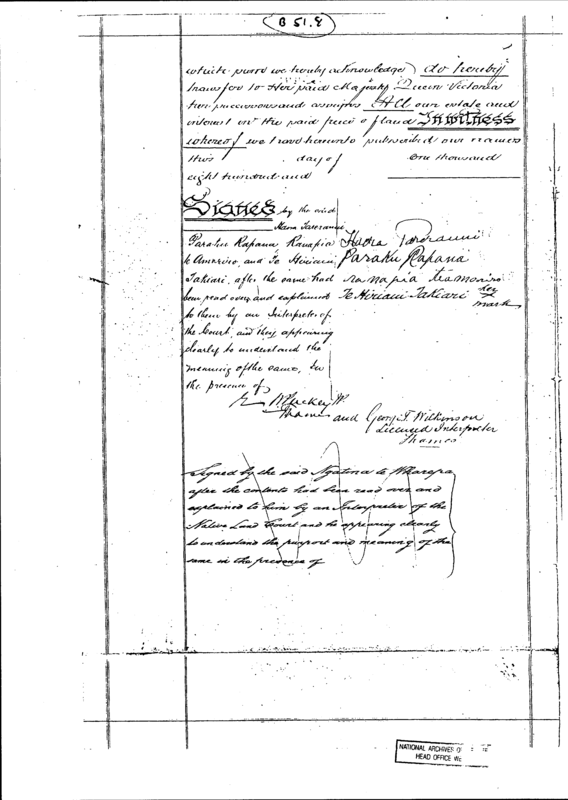 B 51.8
which sum we hereby acknowledge do hereby
transfer to Her said Majesty Queen Victoria
her successors and assigns All our estate and
interest in the said piece of land In witness
whereof we have hereunto subscribed our names
this day of One thousand
eight hundred and
Signed by the said
Haora Tareranui
Paraku Rapana Ranapia
and Te Hiriani
Takiari, after the same had
been read over and explained
to them by an Interpreter of
the Court and they appearing
clearly to understand the
meaning of the same, In
the presence of
Haora Tareranui
Paraku Rapana
ranapia
Te Hiriani Takiari her x
mark
Mackay
Thames and George T Wilkinson
Licensed Interpreter
Thames
Signed by the said
after the contents had been read over and
explained to him by an Interpreter of the
Native Land Court and he appearing clearly
to understand the purport and meaning of the
same in the presence of
NATIONAL ARCHIVES OF
HEAD OFFICE